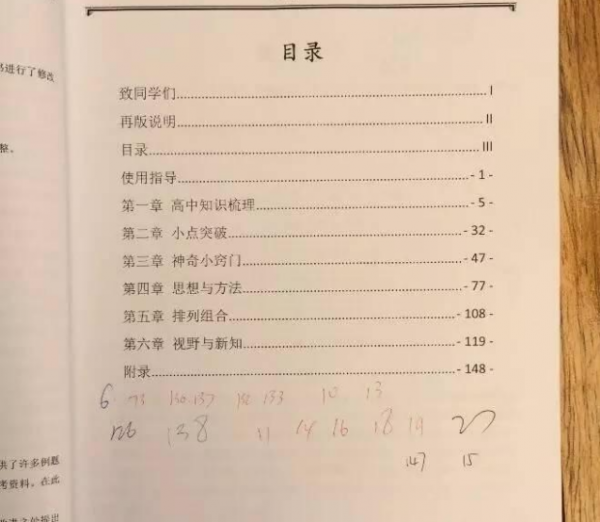 行了修改
整。
供了许多例题
考资料。在此
目录
致同学们........................................ I
再版说明........................................ II
目录........................................ III
使用指导........................................ - 1 -
第一章 高中知识梳理........................................ - 5 -
第二章 小点突破........................................ - 32 -
第三章 神奇小窍门........................................ - 47 -
第四章 思想与方法........................................ - 77 -
第五章 排列组合........................................ - 108 -
第六章 视野与新知........................................ - 119 -
附录........................................ - 148 -
6 73 130 137 133 10 13
126 138 11 14 16 18 19 27
147 15